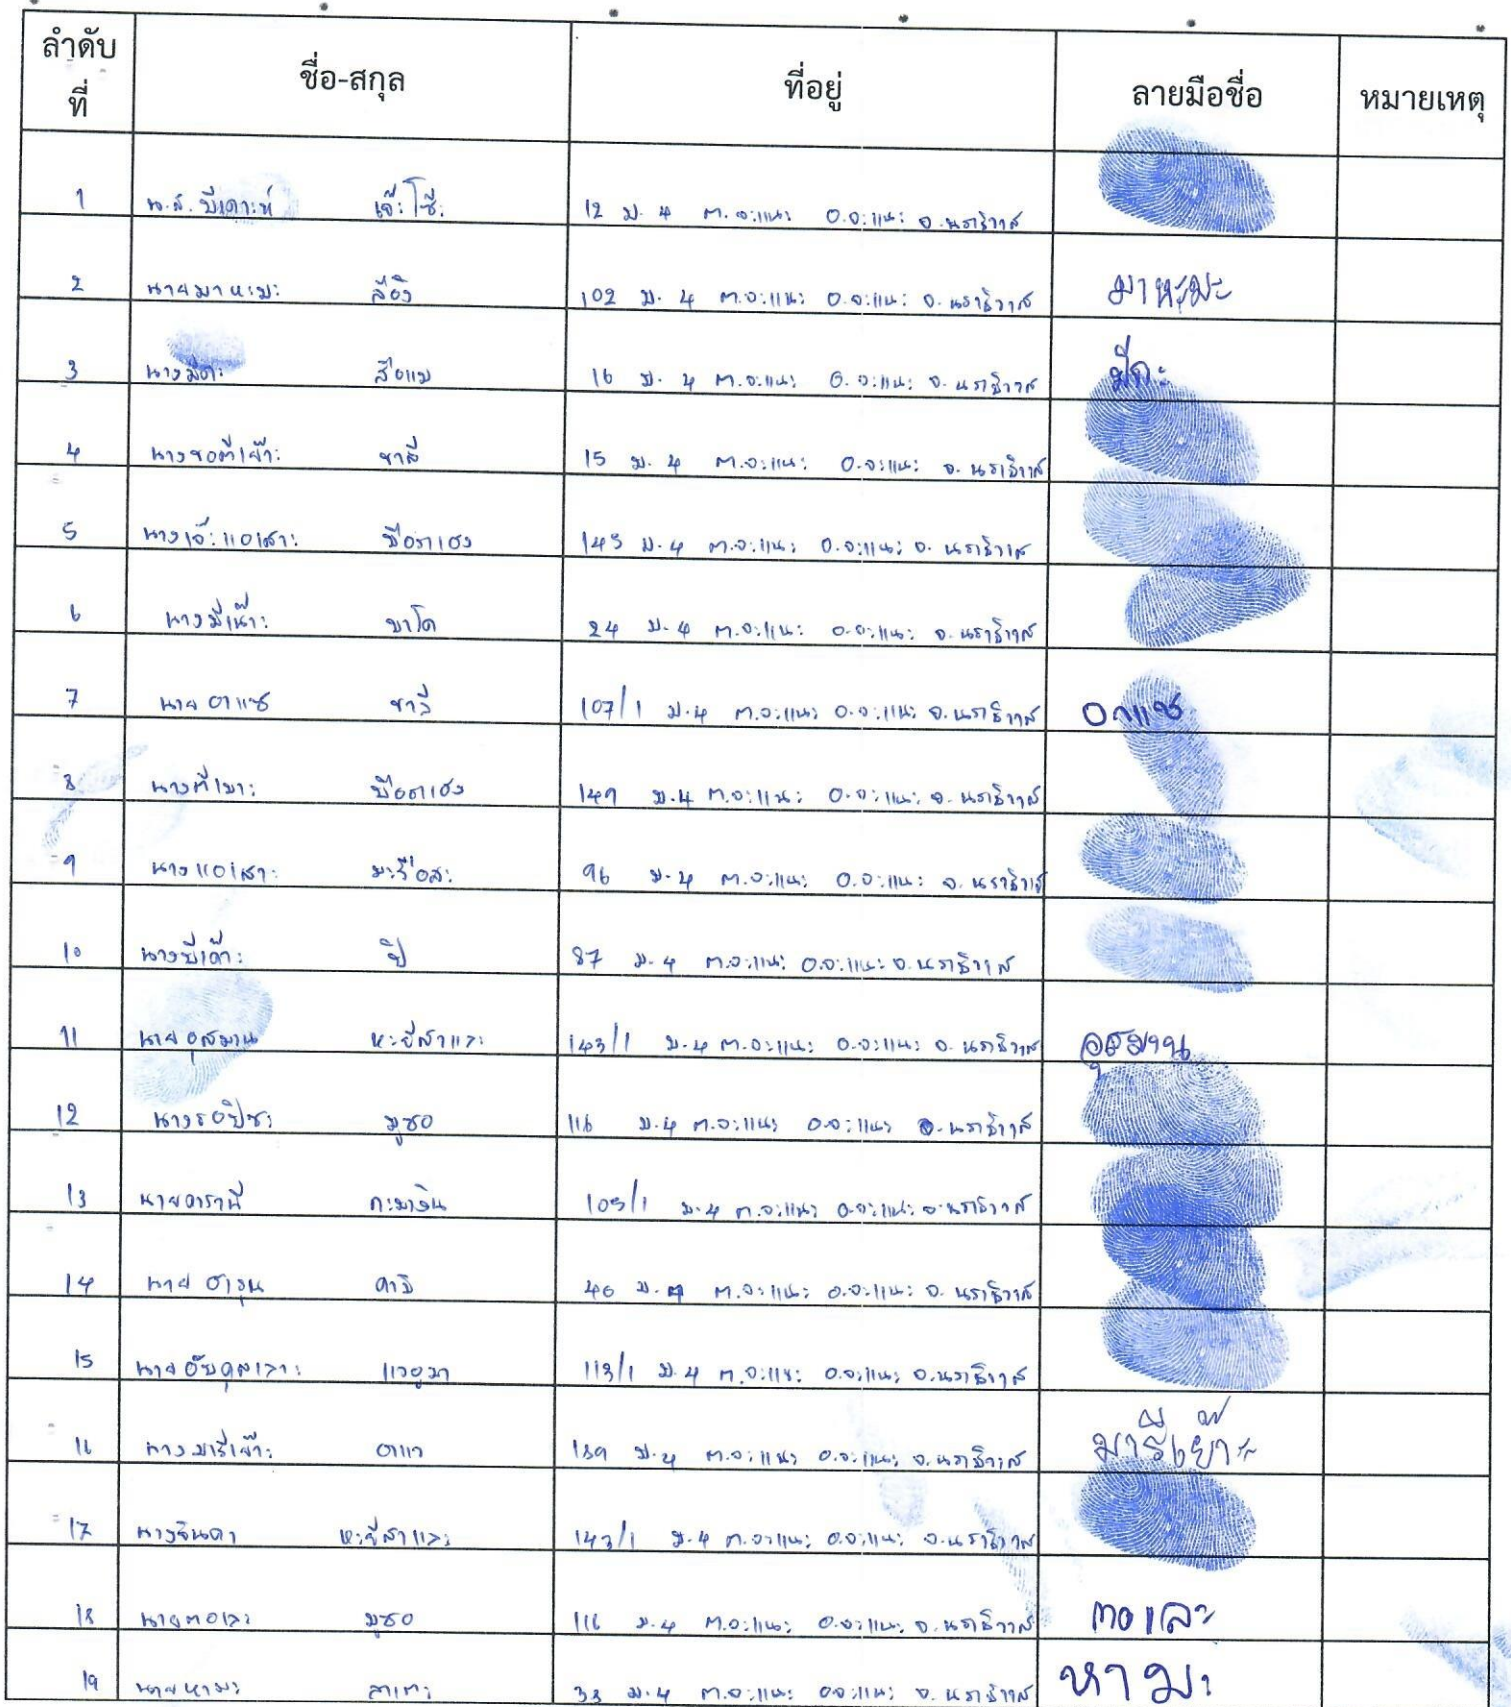 ลำดับที่ ชื่อ-สกุล ที่อยู่ ลายมือชื่อ หมายเหตุ
1 น.ส. บีเดาะห์ เจ๊ะโซ๊ะ 12 ม.4 ต.จะแนะ อ.จะแนะ จ.นราธิวาส
2 นายมาหะมะ ลือจิ 102 ม.4 ต.จะแนะ อ.จะแนะ จ.นราธิวาส มาหะมะ
3 นางมีดะ สือแม 16 ม.4 ต.จะแนะ อ.จะแนะ จ.นราธิวาส มีดะ
4 นางซอตีเย๊าะ ซาลี 15 ม.4 ต.จะแนะ อ.จะแนะ จ.นราธิวาส
5 นางเจ๊ะแอเสาะ บือราเฮง 145 ม.4 ต.จะแนะ อ.จะแนะ จ.นราธิวาส
6 นางมีเน๊าะ บาโด 24 ม.4 ต.จะแนะ อ.จะแนะ จ.นราธิวาส
7 นายอาแซ ซาลี 107/1 ม.4 ต.จะแนะ อ.จะแนะ จ.นราธิวาส อาแซ
8 นางตีเมาะ บือราเฮง 149 ม.4 ต.จะแนะ อ.จะแนะ จ.นราธิวาส
9 นางแอเสาะ มะรือสะ 96 ม.4 ต.จะแนะ อ.จะแนะ จ.นราธิวาส
10 นางบีเด๊าะ ปิ 87 ม.4 ต.จะแนะ อ.จะแนะ จ.นราธิวาส
11 นายอุสมาน หะยีสาและ 143/1 ม.4 ต.จะแนะ อ.จะแนะ จ.นราธิวาส อุสมาน
12 นางรอปิซะ มูซอ 116 ม.4 ต.จะแนะ อ.จะแนะ จ.นราธิวาส
13 นายดารานี กะมางิน 105/1 ม.4 ต.จะแนะ อ.จะแนะ จ.นราธิวาส
14 นาย ฮารุน ดามิ 46 ต.จะแนะ อ.จะแนะ จ.นราธิวาส
15 นายอับดุลเลาะ แวอูมา 113/1 ม.4 ต.จะแนะ อ.จะแนะ จ.นราธิวาส
16 นางมารีเย๊าะ อาแว 139 ม.4 ต.จะแนะ อ.จะแนะ จ.นราธิวาส มารีเย๊าะ
17 นางจินดา หะยีสาและ 143/1 ม.4 ต.จะแนะ อ.จะแนะ จ.นราธิวาส
18 นายตอและ มูซอ 116 ม.4 ต.จะแนะ อ.จะแนะ จ.นราธิวาส ตอและ
19 นายหามะ ลาเตะ 33 ม.4 ต.จะแนะ อ.จะแนะ จ.นราธิวาส หามะ